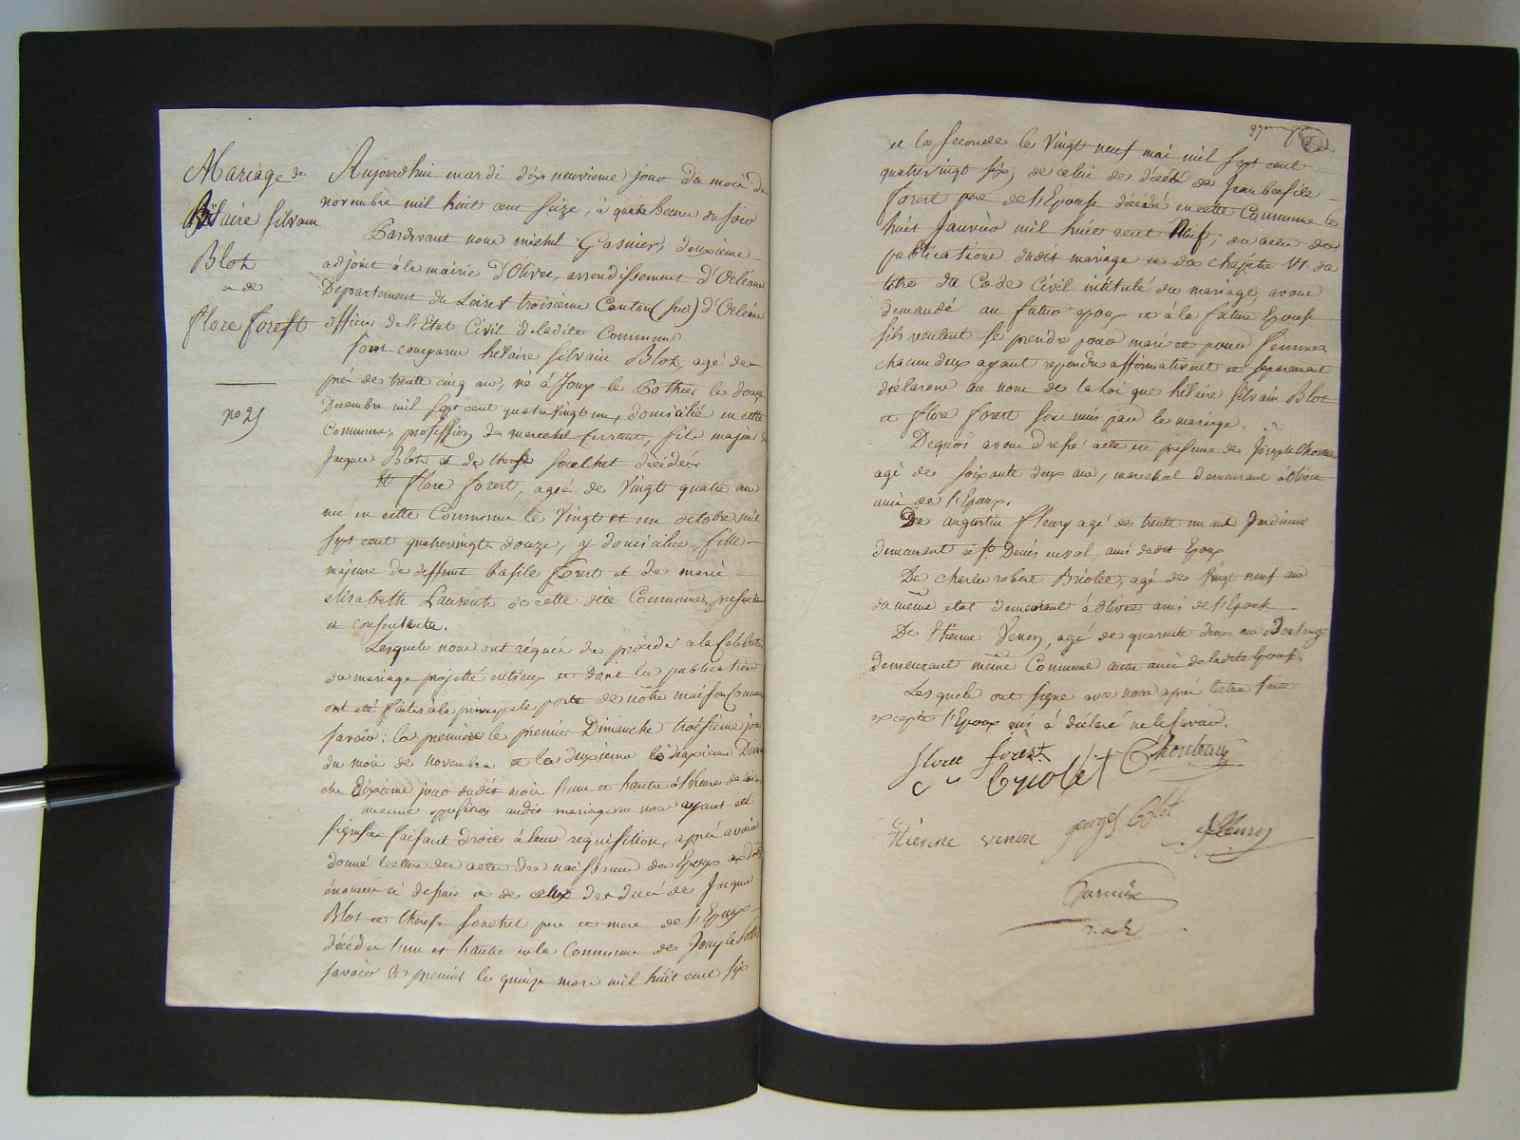 Mariage de
hélaire silvain
Blot
et de
flore forest
no 25
Aujourdhui mardi dix neuvieme jour du mois de
novembre mil huit cent seize, à quatre heures du soir
Pardevant nous michel Gasnier, deuxième
adjoint à la mairie d'Olivet, arrondissement d'Orléans
Département du Loiret troisième Canton (sud) d'Orléans
officier de l'Etat Civil de ladite Commune
sont comparus helaire silvain Blot, agé de
près de trente cinq ans, né à Jouy le Pothier le douze
Decembre mil sept cent quatrevingt un, domicilié en cette
Commune, profession de marechal ferrant, fils majeur de
Jacques Blot et de therese fouchet décédés
Et flore forest, agée de Vingt quatre ans
née en cette Commune le Vingt et un octobre mil
sept cent quatrevingt douze, y domiciliée, fille
majeure de deffunt basile forest et de marie
elisabeth Laurent de cette dite Commune, presente
et consentente.
Lesquels nous ont requis de procéder a la Celebration
du mariage projetté entreux et dont les publications
ont été faites à la principale porte de nôtre maison Commune
savoir : la première le premier Dimanche troisieme jour
du mois de novembre et la deuxieme le dixieme Diman
che dixieme jour dudit mois l'une et l'autre à l'heure de
aucune opposition audit mariage ne nous ayant été
signifiée faisant droit à leur requisition, après avoir
donné lecture des actes des naissances des Epoux
énoncées ci dessus et de celui des décés de Jacques
Blot et therese fouchet pere et mere de l'Epoux
décédés l'une et l'autre en la Commune de Jouy le Pothier
savoir le premier le quinze mars mil huit cent six
et la seconde le Vingt neuf mai mil sept cent
quatrevingt six, de celui de décès de Jean basile
forest pere de l'Epouse décédé en cette Commune le
huit Janvier mil huit cent Neuf, des actes des
publications dudit mariage et du chapitre VI du
titre du Code Civil intitulé du mariage, avons
demandé au futur epoux et à la future Epouse
s'ils veulent se prendre pour mari et pour femme
chacun deux ayant repondu affirmativement et separement
déclarons au nom de la loi que hélaire silvain Blot
et flore forest son unis par le mariage.
Dequoi avons dressé acte en présence de Joseph
agé de soixante deux ans, marechal demeurant à Olivet
ami de l'Epoux.
De augustin fleury agé de trente un ans Jardinier
demeurant à St Denis en val ami dudit Epoux
De charles robert Briolet, agé de Vingt neuf ans
du même etat demeurant à Olivet ami de l'Epouse
De Etienne Venon, agé de quarante deux ans
demeurant même Commune aussi ami de ladite Epouse.
Lesquels ont signé avec nous après lecture faite
excepté l'Epoux qui à déclaré ne le savoir.
flore forest
Etienne venon
fleury
Gasnier